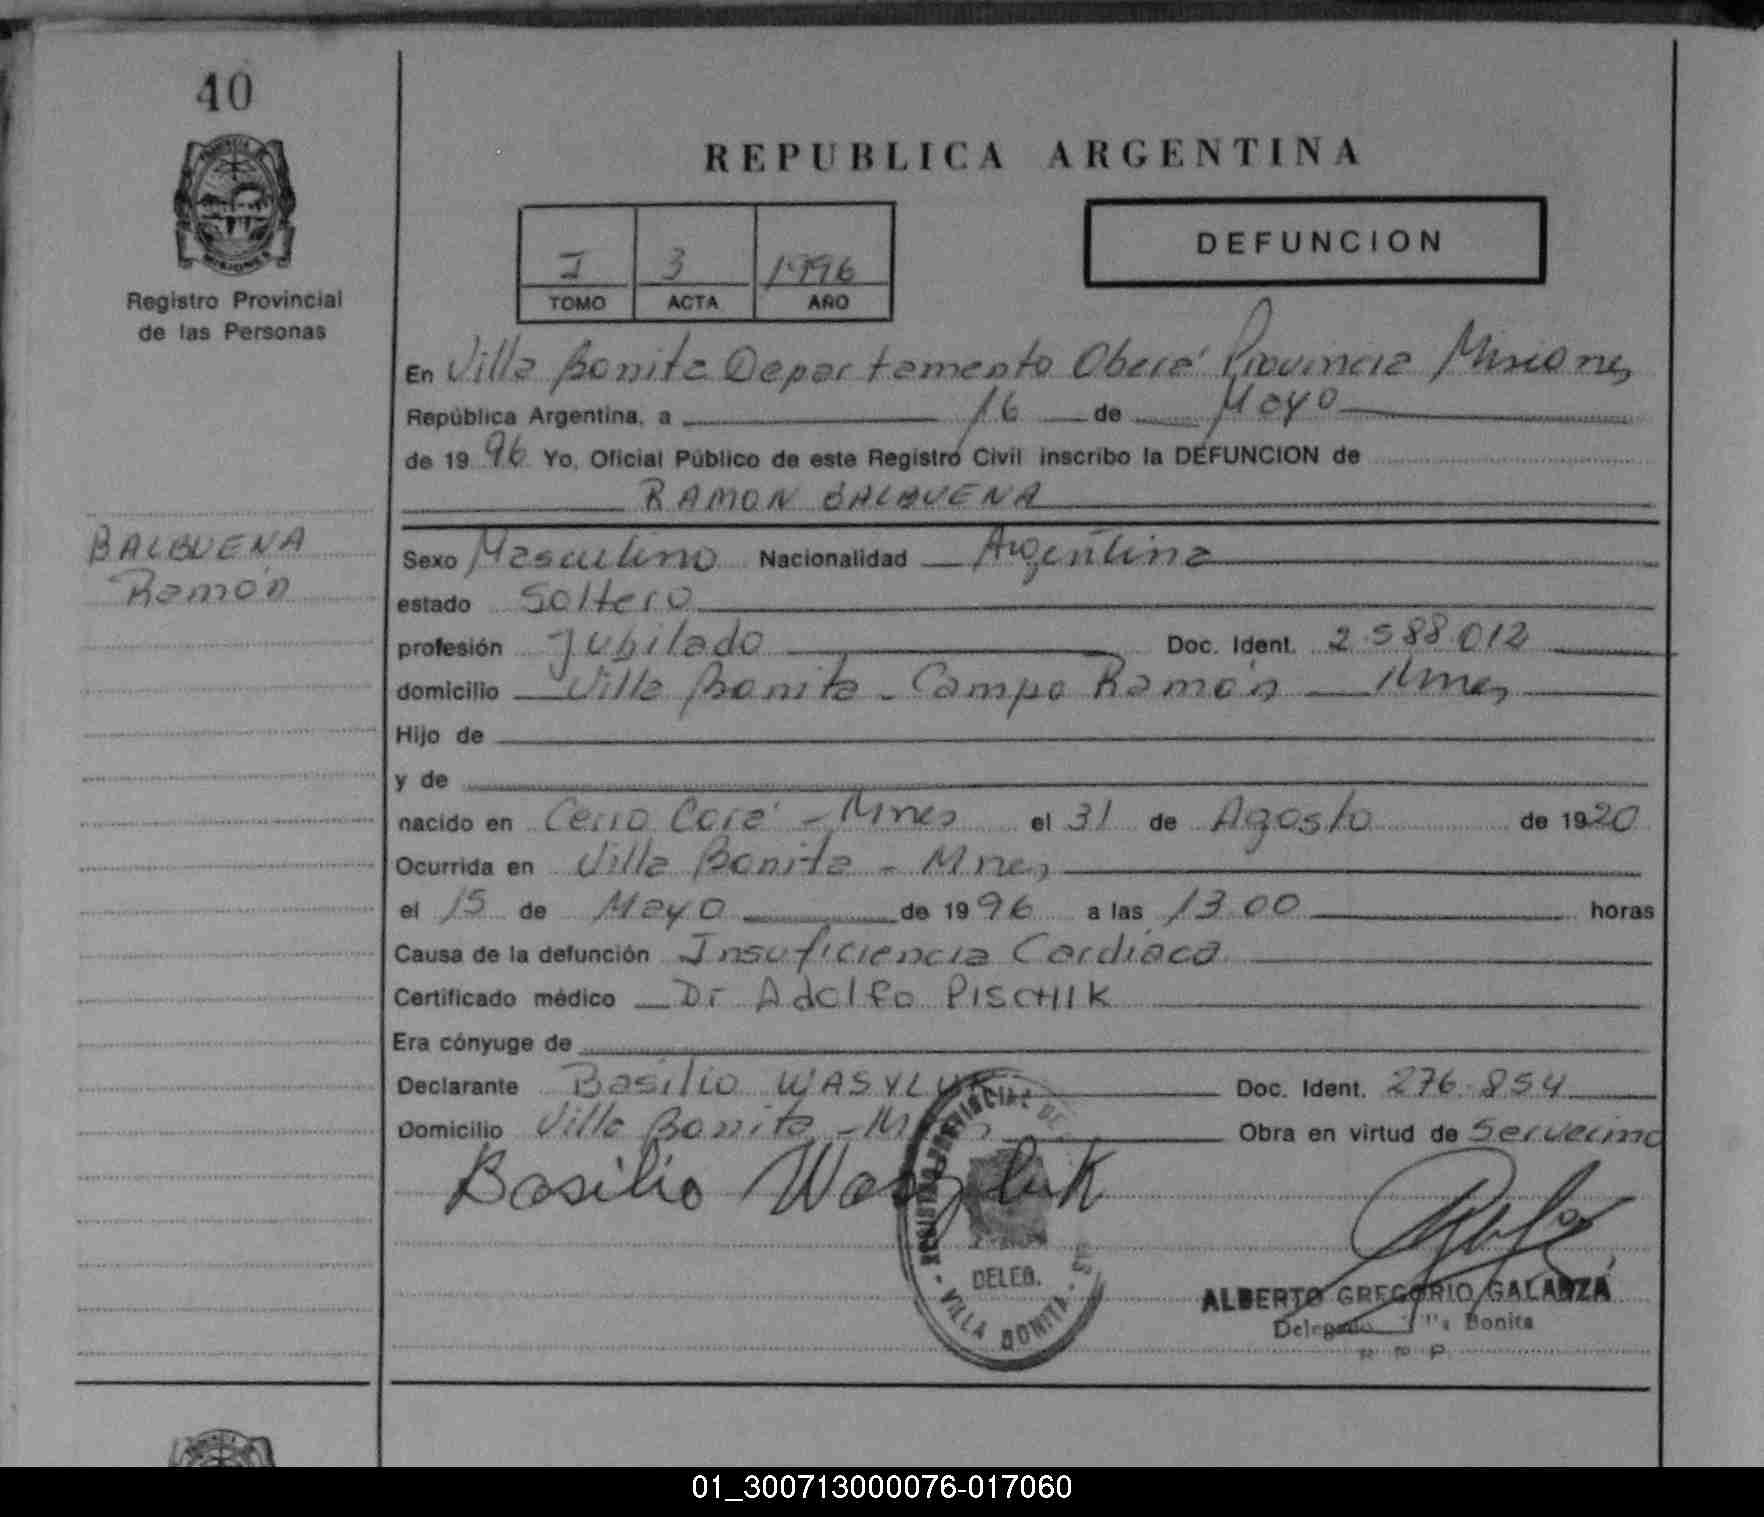 40
MISIONES
Registro Provincial
de las Personas
BALBUENA
Ramón
REPUBLICA ARGENTINA
I 3 1996
TOMO ACTA AÑO
DEFUNCION
En Villa Bonita Departamento Oberá Provincia Misiones
República Argentina, a 16 de Mayo
de 1996 Yo, Oficial Público de este Registro Civil inscribo la DEFUNCION de
RAMON BALBUENA
Sexo Masculino Nacionalidad Argentina
estado Soltero
profesión Jubilado Doc. Ident. 2.588.012
domicilio Villa Bonita - Campo Ramón Mnes
Hijo de
y de
nacido en Cerro Corá - Mnes el 31 de Agosto de 1920
Ocurrida en Villa Bonita - Mnes
el 15 de Mayo de 1996 a las 13.00 horas
Causa de la defunción Insuficiencia Cardiaca
Certificado médico Dr Adolfo PISCHIK
Era cónyuge de
Declarante Basilio WASYLUK Doc. Ident. 276.854
Domicilio Villa Bonita - Obra en virtud de
Basilio Wasyluk
REGISTRO PROVINCIAL DE
DELEG.
- VILLA BONITA -
ALBERTO GREGORIO GALARZA
Delegado Bonita
01_300713000076-017060